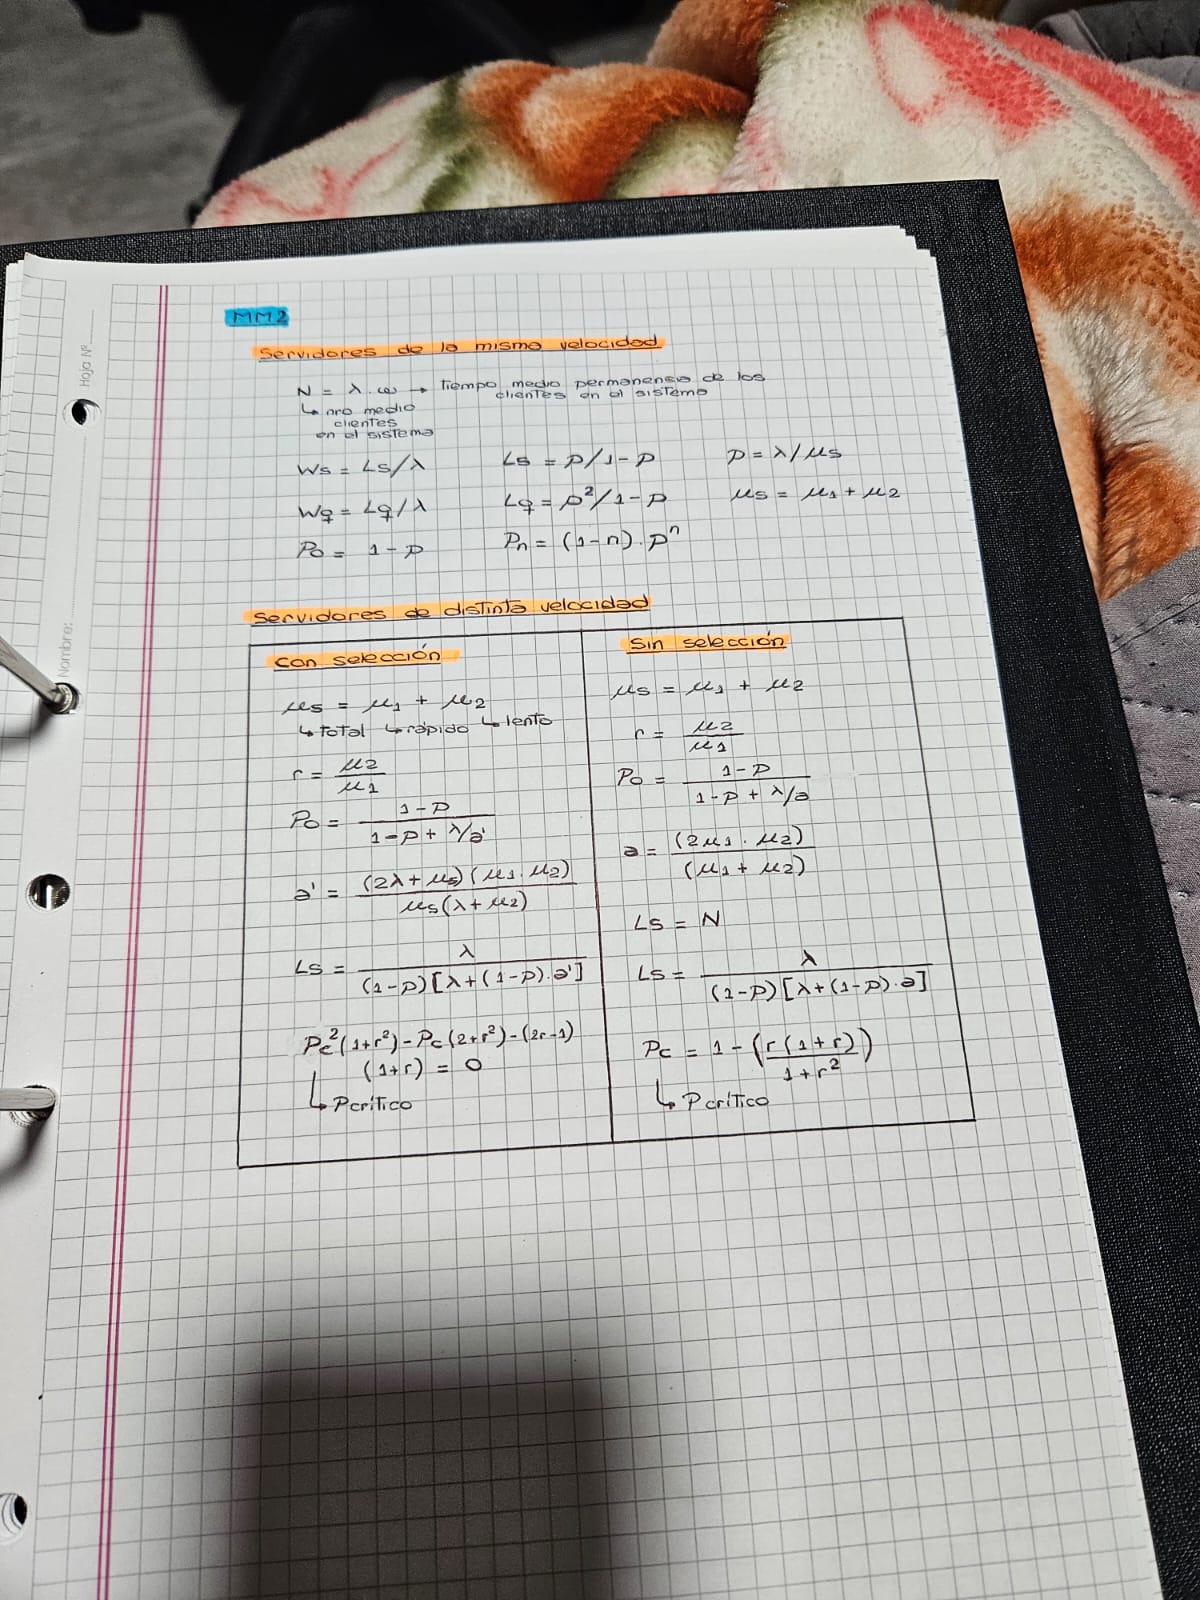 MM2
Servidores de la misma velocidad
N = λ.ω → tiempo medio permanensia de los
clientes en el sistema
↳ nro medio
clientes
en el sistema
Ws = Ls/λ Ls = p/1-p p = λ/μs
Wq = Lq/λ Lq = p²/1-p μs = μ1 + μ2
Po = 1-p Pn = (1-n).pⁿ
Servidores de distinta velocidad
Con selección
μs = μ1 + μ2
↳ total ↳ rápido ↳ lento
r = μ2/μ1
Po = 1-p / 1-p + λ/a'
a' = (2λ + μs)(μ1.μ2) / μs(λ+μ2)
Ls = λ / (1-p)[λ+(1-p).a']
Pc²(1+r²)-Pc(2+r²)-(2r-1)
(1+r) = 0
↳ P crítico
Sin selección
μs = μ1 + μ2
r = μ2/μ1
Po = 1-p / 1-p + λ/a
a = (2μ1.μ2) / (μ1 + μ2)
Ls = N
Ls = λ / (1-p)[λ+(1-p).a]
Pc = 1-(r(1+r) / 1+r²)
↳ P crítico
Hoja Nº
Nombre: